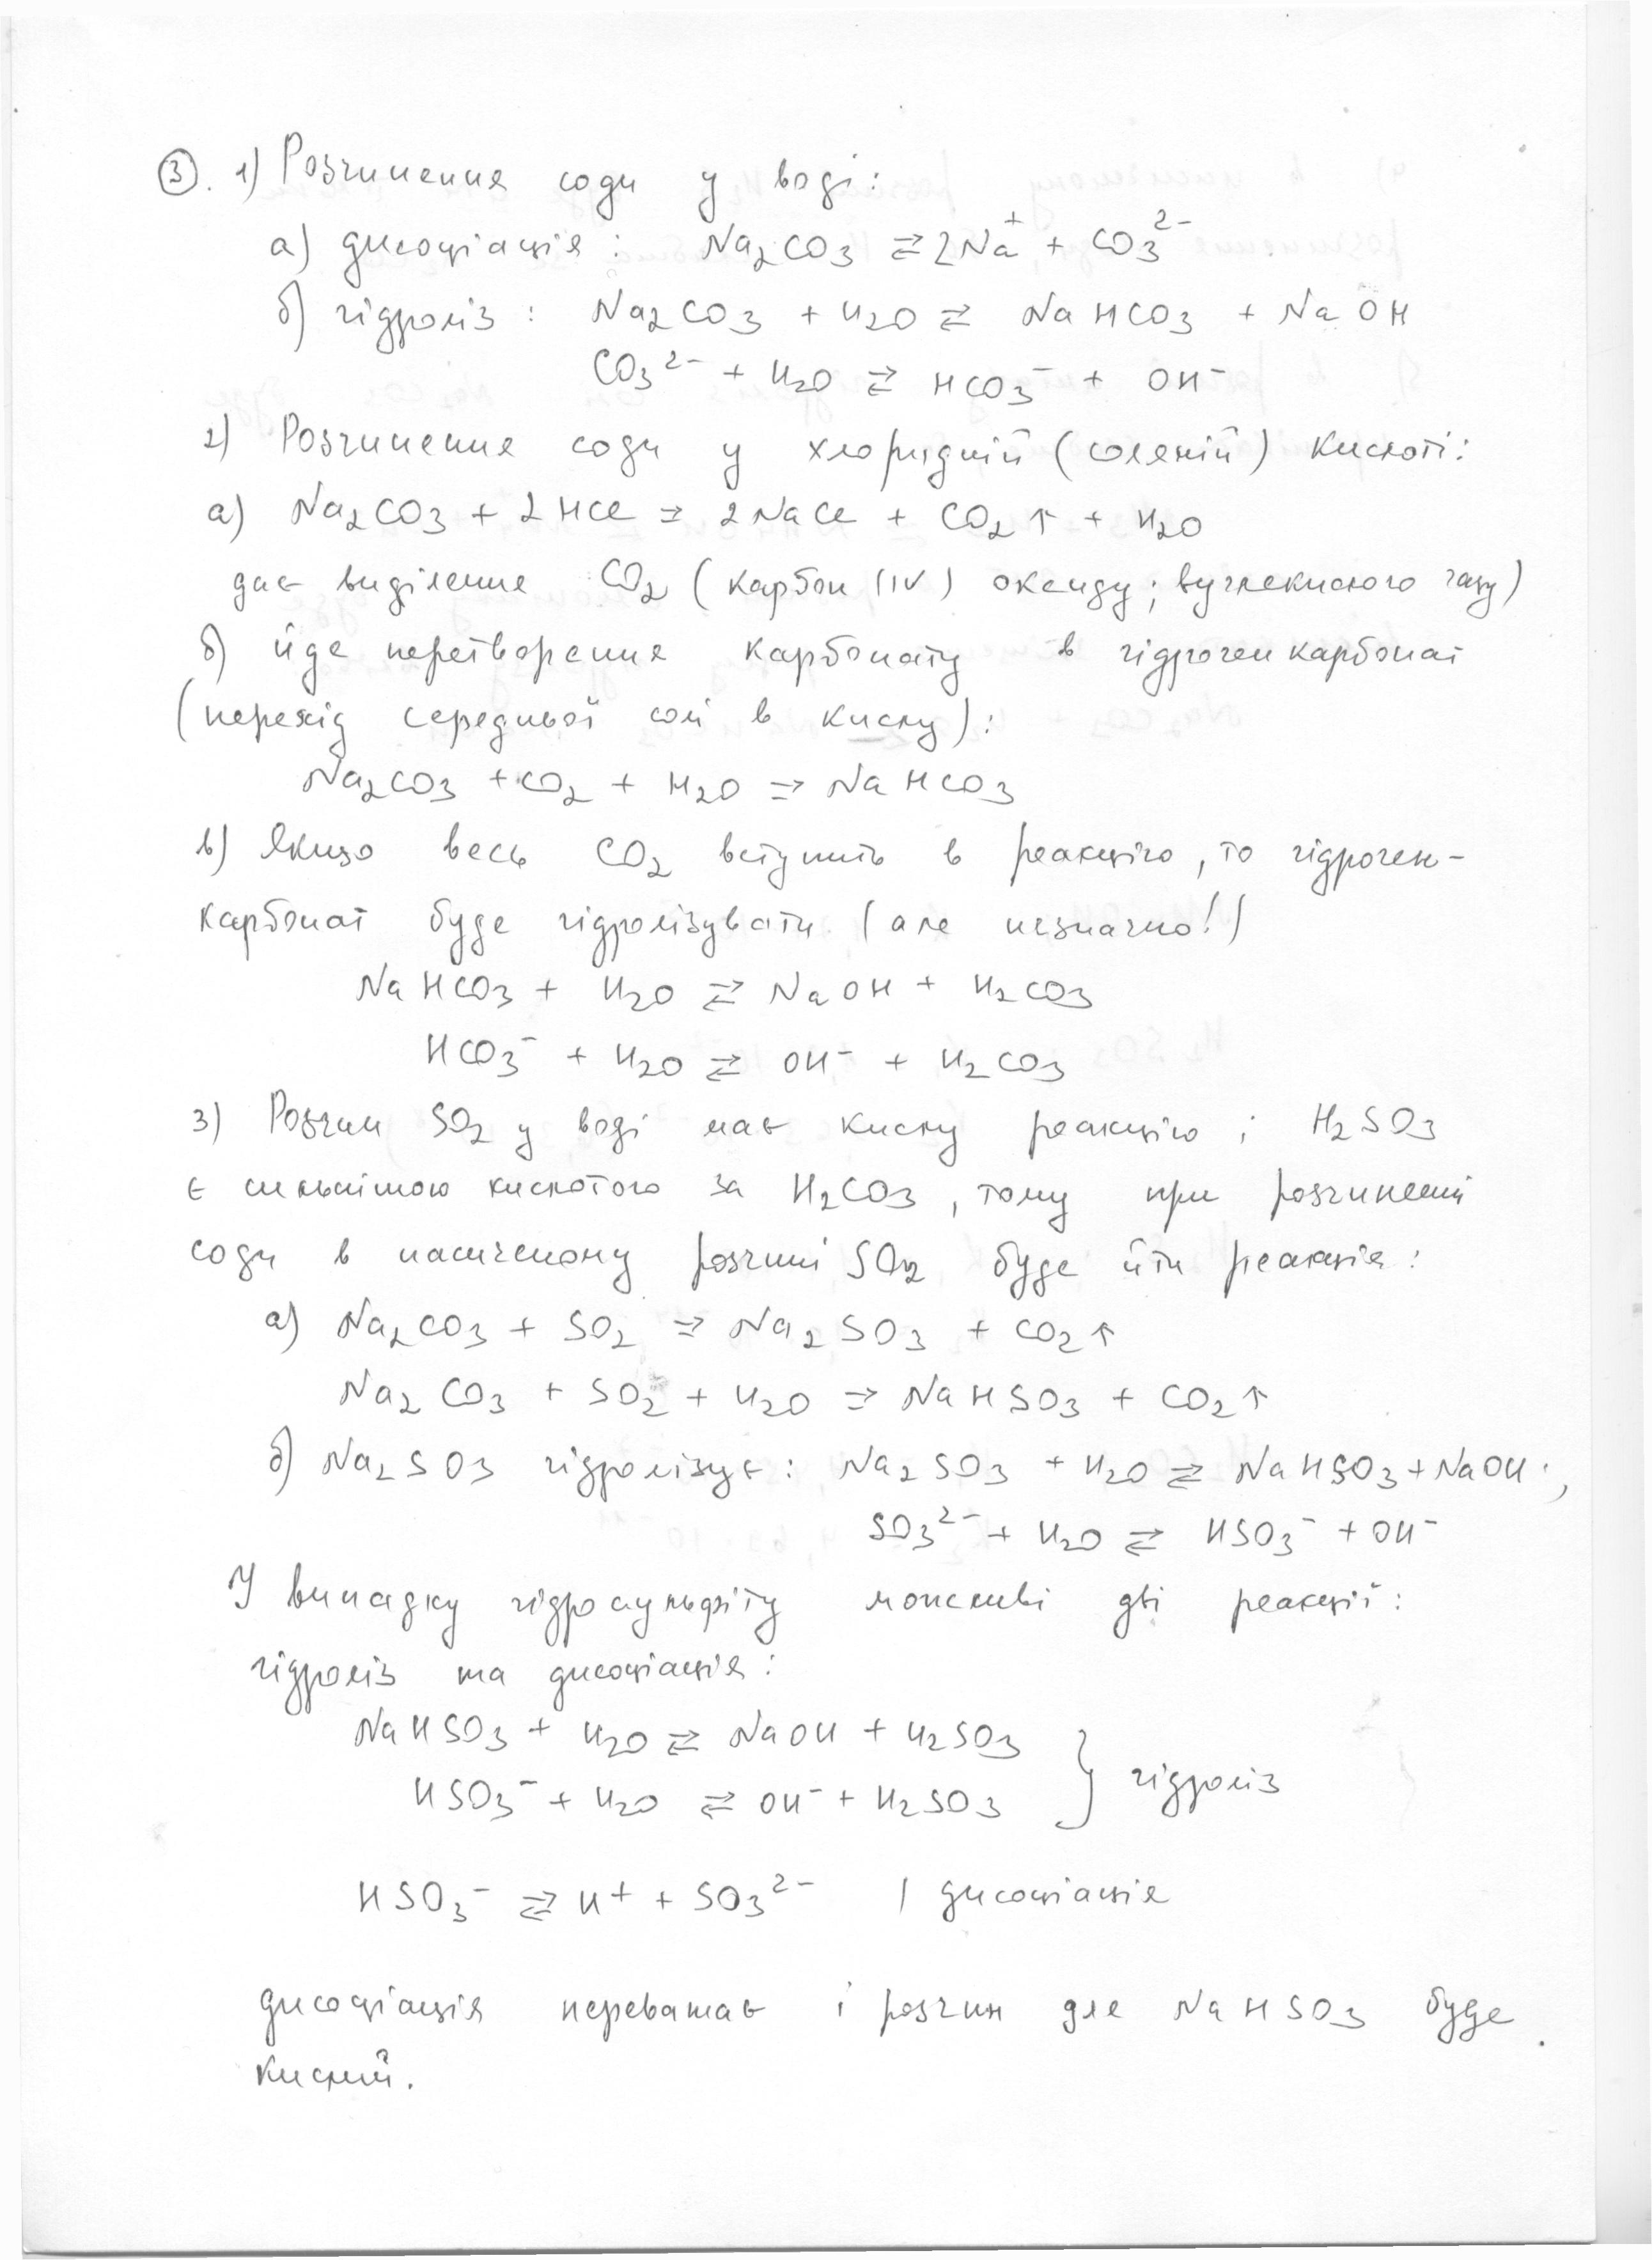 ③. 1) Розчинення соди у воді:
а) дисоціація: Na₂CO₃ ⇄ 2Na⁺ + CO₃²⁻
б) гідроліз: Na₂CO₃ + H₂O ⇄ NaHCO₃ + NaOH
CO₃²⁻ + H₂O ⇄ HCO₃⁻ + OH⁻
2) Розчинення соди у хлоридній (соляній) кислоті:
а) Na₂CO₃ + 2HCl ⇉ 2NaCl + CO₂↑ + H₂O
дає виділення CO₂ (карбон (IV) оксиду; вуглекислого газу)
б) йде перетворення карбонату в гідрогенкарбонат
(перехід середньої солі в кислу):
Na₂CO₃ + CO₂ + H₂O ⇉ NaHCO₃
в) Якщо весь CO₂ вступить в реакцію, то гідроген-
карбонат буде гідролізувати (але незначно!)
NaHCO₃ + H₂O ⇄ NaOH + H₂CO₃
HCO₃⁻ + H₂O ⇄ OH⁻ + H₂CO₃
3) Розчин SO₂ у воді має кислу реакцію; H₂SO₃
є сильнішою кислотою за H₂CO₃, тому при розчиненні
соди в насиченому розчині SO₂ буде йти реакція:
а) Na₂CO₃ + SO₂ ⇉ Na₂SO₃ + CO₂↑
Na₂CO₃ + SO₂ + H₂O ⇉ NaHSO₃ + CO₂↑
б) Na₂SO₃ гідролізує: Na₂SO₃ + H₂O ⇄ NaHSO₃ + NaOH;
SO₃²⁻ + H₂O ⇄ HSO₃⁻ + OH⁻
У випадку гідросульфіту можливі дві реакції:
гідроліз та дисоціація:
NaHSO₃ + H₂O ⇄ NaOH + H₂SO₃
HSO₃⁻ + H₂O ⇄ OH⁻ + H₂SO₃ } гідроліз
HSO₃⁻ ⇄ H⁺ + SO₃²⁻ | дисоціація
дисоціація переважає і розчин для NaHSO₃ буде
кислий.